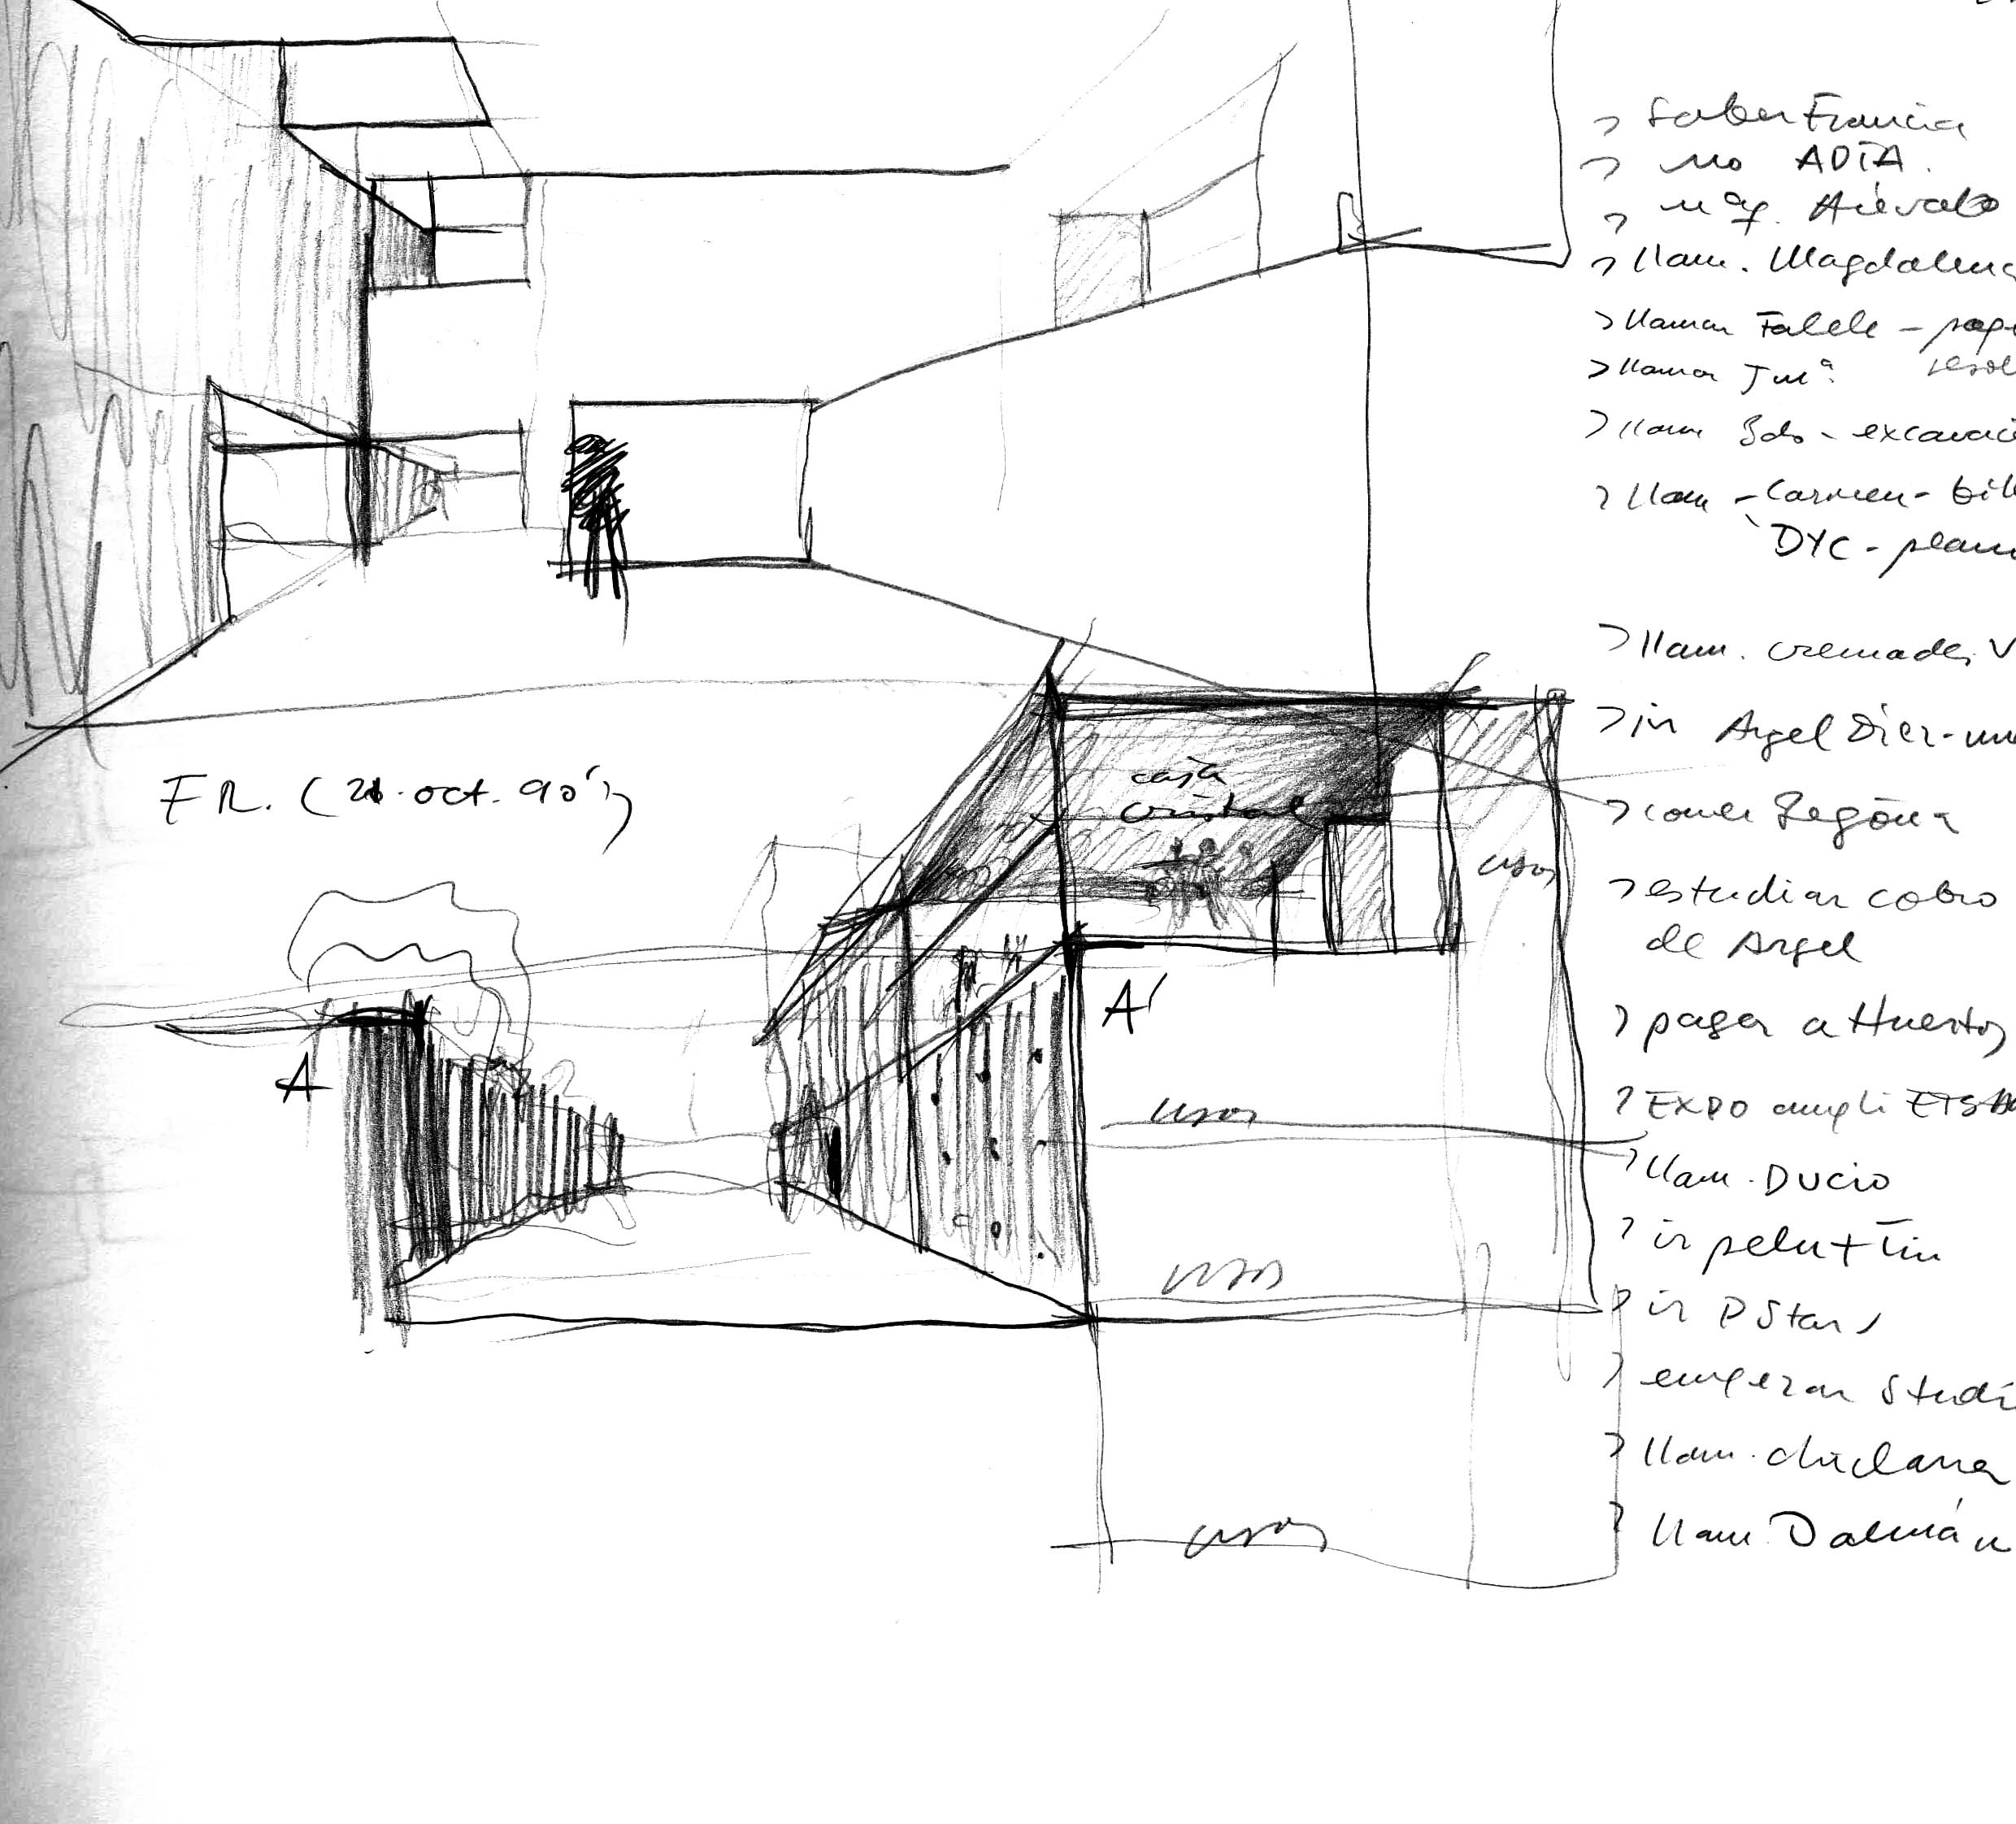 saber Francia
no ADIA.
Arévalo
llam. Magdalena
llamar Falele -
llamar Jmª.
llam - excavaci
llam - Carmen -
DYC -
llam. cremades V
ir Argel Diez -
comer Segovia
estudiar cobro
de Argel
pagar a Huertos
EXPO ampli ETSA
llam. DUCIO
ir pelu + Tin
ir P Star
empezar Studi
llam. chiclana
llam. Dalmán
FR. (21. oct. 90')
caja
cristal
usos
A
A'
usos
usos
usos